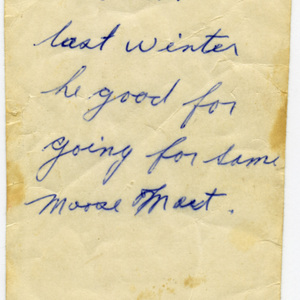 last winter
he good for
going for some
moose Mast.